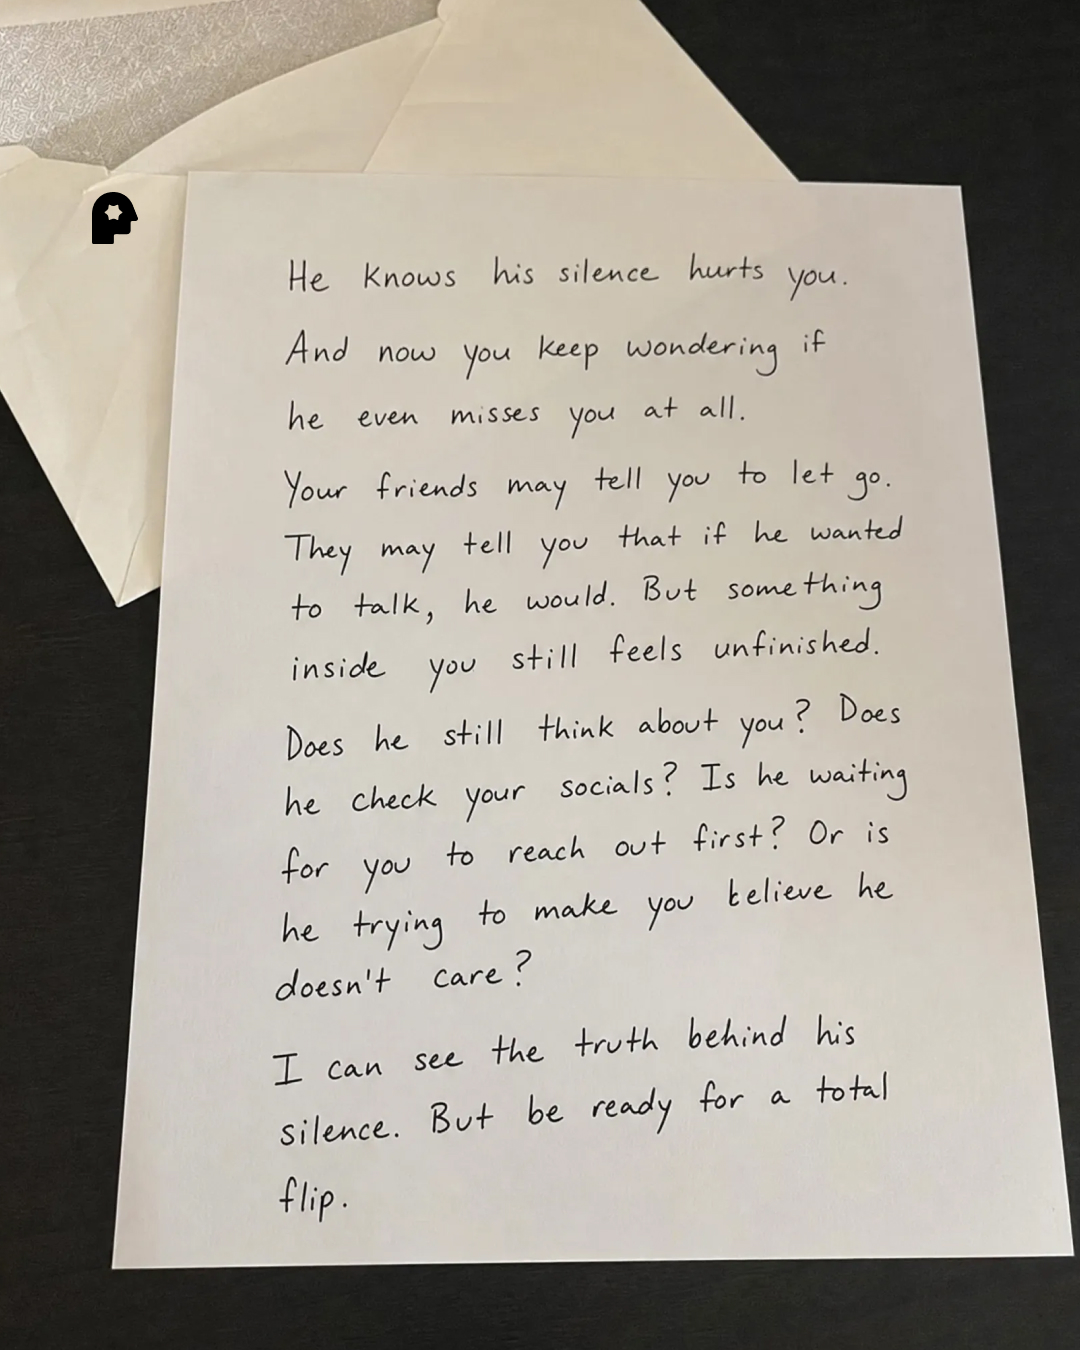 He knows his silence hurts you.
And now you keep wondering if
he even misses you at all.
Your friends may tell you to let go.
They may tell you that if he wanted
to talk, he would. But something
inside you still feels unfinished.
Does he still think about you? Does
he check your socials? Is he waiting
for you to reach out first? Or is
he trying to make you believe he
doesn't care?
I can see the truth behind his
silence. But be ready for a total
flip.